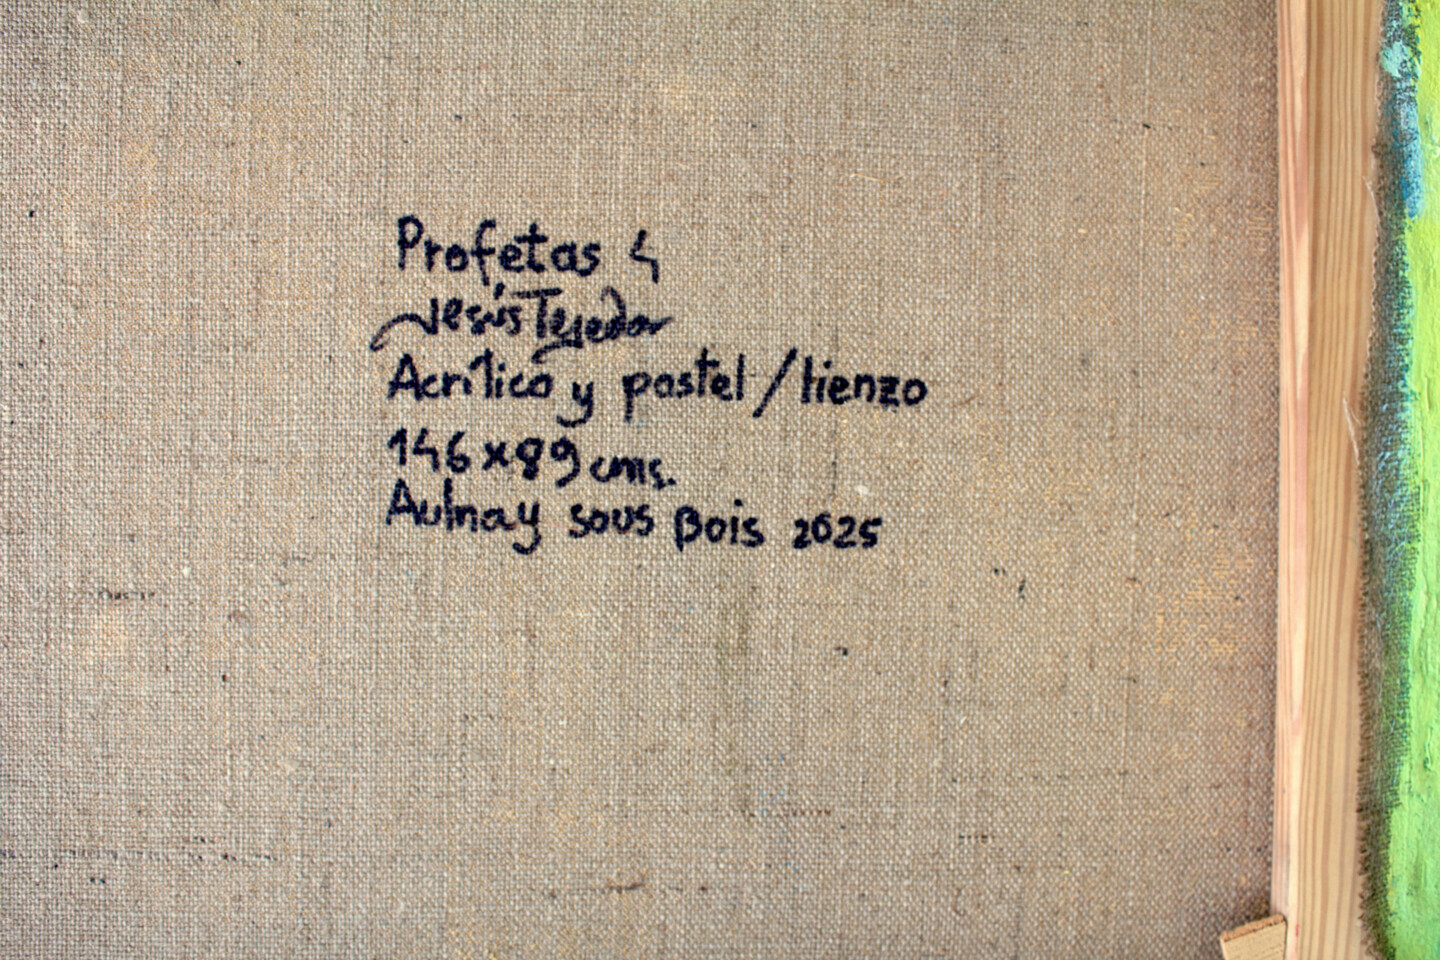 Profetas 4
Jesús Tejedor
Acrílico y pastel / lienzo
146 x 89 cms.
Aulnay sous Bois 2025